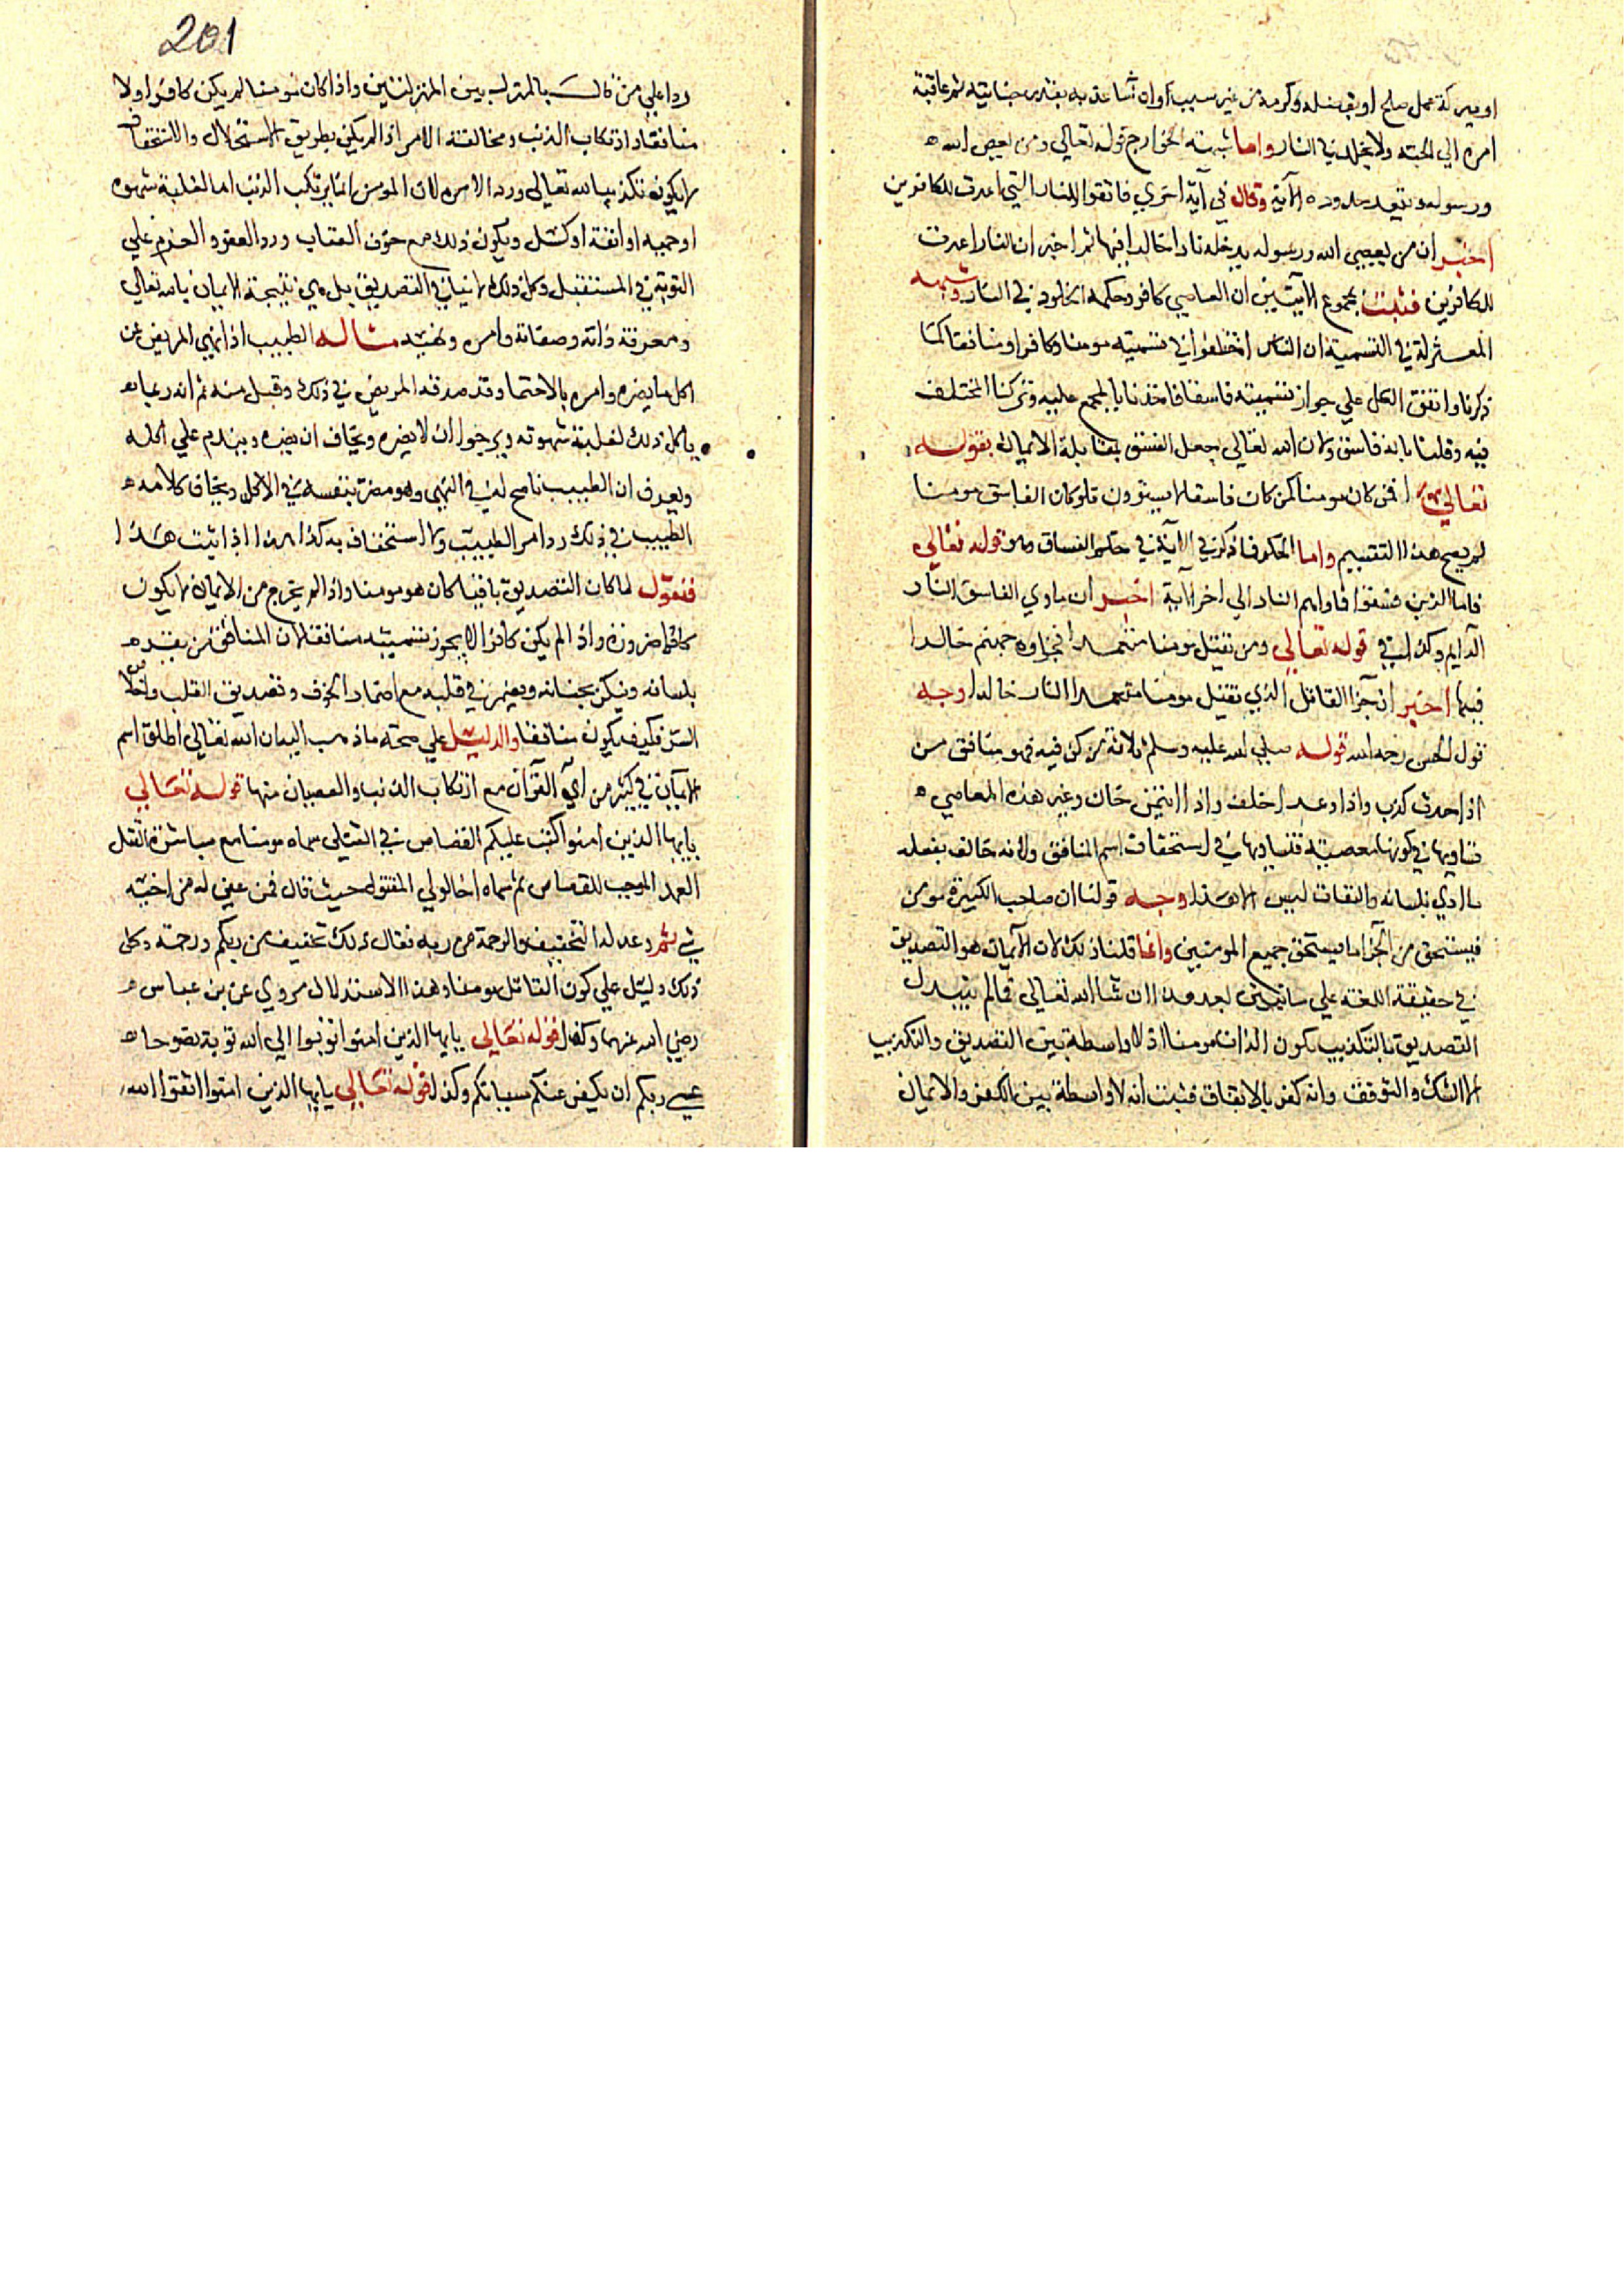 او ببركة عمل صلح او بفضله وكرمه من غير سبب واوان شا عذبه بقدر جنايته ثم عاقبة
امره الي الجنة ولا يخلد في النار واما شبهة الخوارج قوله تعالي ومن يعص الله
ورسوله ويتعد حدوده الآية وقال في آية اخري فاتقوا النار التي اعدت للكافرين
اخبر ان من يعصي الله ورسوله يدخله نارا خالدا فيها ثم اخبر ان النار اعدت
للكافرين فثبت بمجموع الايتين ان العاصي كافر وحكمه الخلود في النار وشبهة
المعتزلة في التسمية ان الناس اختلفوا في تسميته مومنا وكافرا ومنافقا كما
ذكرنا واتفق الكل علي جواز تسميته فاسقا فاخذنا بالمجمع عليه وتركنا المختلف
فيه وقلنا بانه فاسق ولان الله تعالي جعل الفسق بمقابلة الايمان بقوله
تعالي افمن كان مومنا كمن كان فاسقا لا يستوون فلو كان الفاسق مومنا
لم يصح هذا التقسيم واما الحكم فما ذكر في الآية في حكم الفساق وهو قوله تعالي
فاما الذين فسقوا فماواهم النار الي اخر الآية اخبر ان ماوي الفاسق النار
الدايم وكذلك في قوله تعالي ومن يقتل مومنا متعمدا فجزاوه جهنم خالدا
فيها اخبر ان جزا القاتل الذي يقتل مومنا متعمدا النار خالدا وجه
قول الحسن رحمه الله قوله صلي الله عليه وسلم ثلاثة من كن فيه فهو منافق من
اذا حدث كذب واذا وعد اخلف واذا ائتمن خان وغير هذه المعاصي
تساويها في كونها معصية فتساويها في استحقاق اسم المنافق ولانه خالف بفعله
ما ادي بلسانه والنفاق ليس الا هذا وجه قولنا ان صاحب الكبيرة مومن
فيستحق من الجزا ما يستحق جميع المومنين وانما قلنا ذلك لان الايمان هو التصديق
في حقيقة اللغة علي ما نبين بعد هذا ان شا الله تعالي فما لم يتبدل
التصديق بالتكذيب يكون الذات مومنا اذ لا واسطة بين التصديق والتكذيب
الا الشك والتوقف وانه كفر بالاتفاق فثبت انه لا واسطة بين الكفر والايمان
201
ردا علي من قال بالمنزلة بين المنزلتين واذا كان مومنا لم يكن كافرا ولا
منافقا وارتكاب الذنب ومخالفة الامر اذا لم يكن بطريق الاستحلال والاستخفاف
لا يكون تكذيبا لله تعالي ورد الامره لان المومن انما يرتكب الذنب اما لغلبة شهوه
او حمية او انفة او كسل ويكون ذلك مع خوف العقاب ورد العفو والعزم علي
التوبة في المستقبل وكل ذلك لا ينافي التصديق بل هي نتيجة الايمان بالله تعالي
ومعرفة ذاته وصفاته وامره ونهيه مثاله الطبيب اذا نهي المريض عن
اكل ما يضره وامره بالاحتما وقد صدقه المريض في ذلك وقبل منه ثم انه ربما
ياكل ذلك لغلبة شهوته ويرجوا ان لا يضره ويخاف ان يضره ويندم علي اكله
ويعرف ان الطبيب ناصح له في النهي وهو مضر بنفسه في الاكل ويخاف كلامه
الطبيب في ذلك رد امر الطبيب ولا استخفاف به كذا هذا اذا ثبت هذا
فنقول لما كان التصديق باقيا كان هو مومنا واذا لم يخرج من الايمان لا يكون
كافرا ضرورة واذا لم يكن كافرا لا يجوز تسميته منافقا لان المنافق من يقر
بلسانه وينكر بجنانه ويضمر في قلبه مع اضمار الخوف وتصديق القلب واخلاص
السر فكيف يكون منافقا والدليل علي صحة ما ذهب اليه ان الله تعالي اطلق اسم
الايمان في كثير من آي القرآن مع ارتكاب الذنب والعصيان منها قوله تعالي
يايها الذين امنوا كتب عليكم القصاص في القتلي سماه مومنا مع مباشرة القتل
العمد الموجب للقصاص ثم سماه اخا لولي المقتول حيث قال فمن عفي له من اخيه
شي ثم وعد له التخفيف والرحمة من ربه فقال ذلك تخفيف من ربكم ورحمة وكل
ذلك دليل علي كون القاتل مومنا وهذا الاستدلال مروي عن بن عباس
رضي الله عنهما وكذا قوله تعالي يايها الذين امنوا توبوا الي الله توبة نصوحا
عسي ربكم ان يكفر عنكم سياتكم وكذا قوله تعالي يايها الذين امنوا اتقوا الله